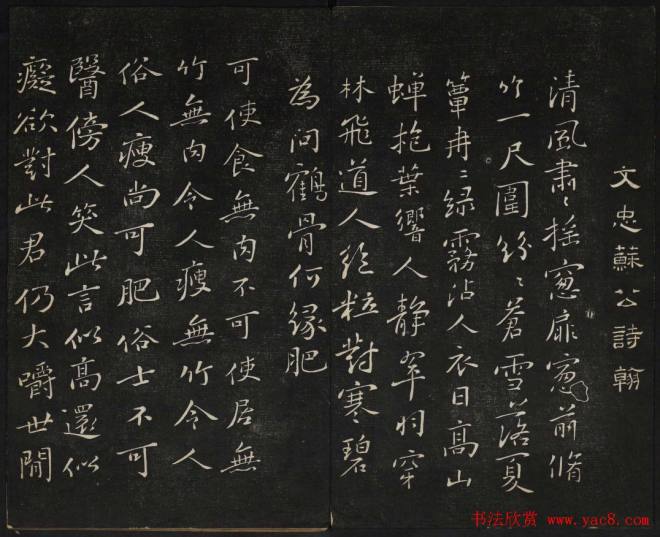 文忠蘇公詩翰
清風肅〻揺窓扉窓前脩
竹一尺圍紛〻蒼雪落夏
簟冉〻綠霧沾人衣日高山
蟬抱葉響人静翠羽穿
林飛道人絶粒對寒碧
為問鶴骨何緣肥
可使食無肉不可使居無
竹無肉令人瘦無竹令人
俗人瘦尚可肥俗士不可
醫傍人笑此言似高還似
癡欲對此君仍大嚼世間
书法欣赏 www.yac8.com